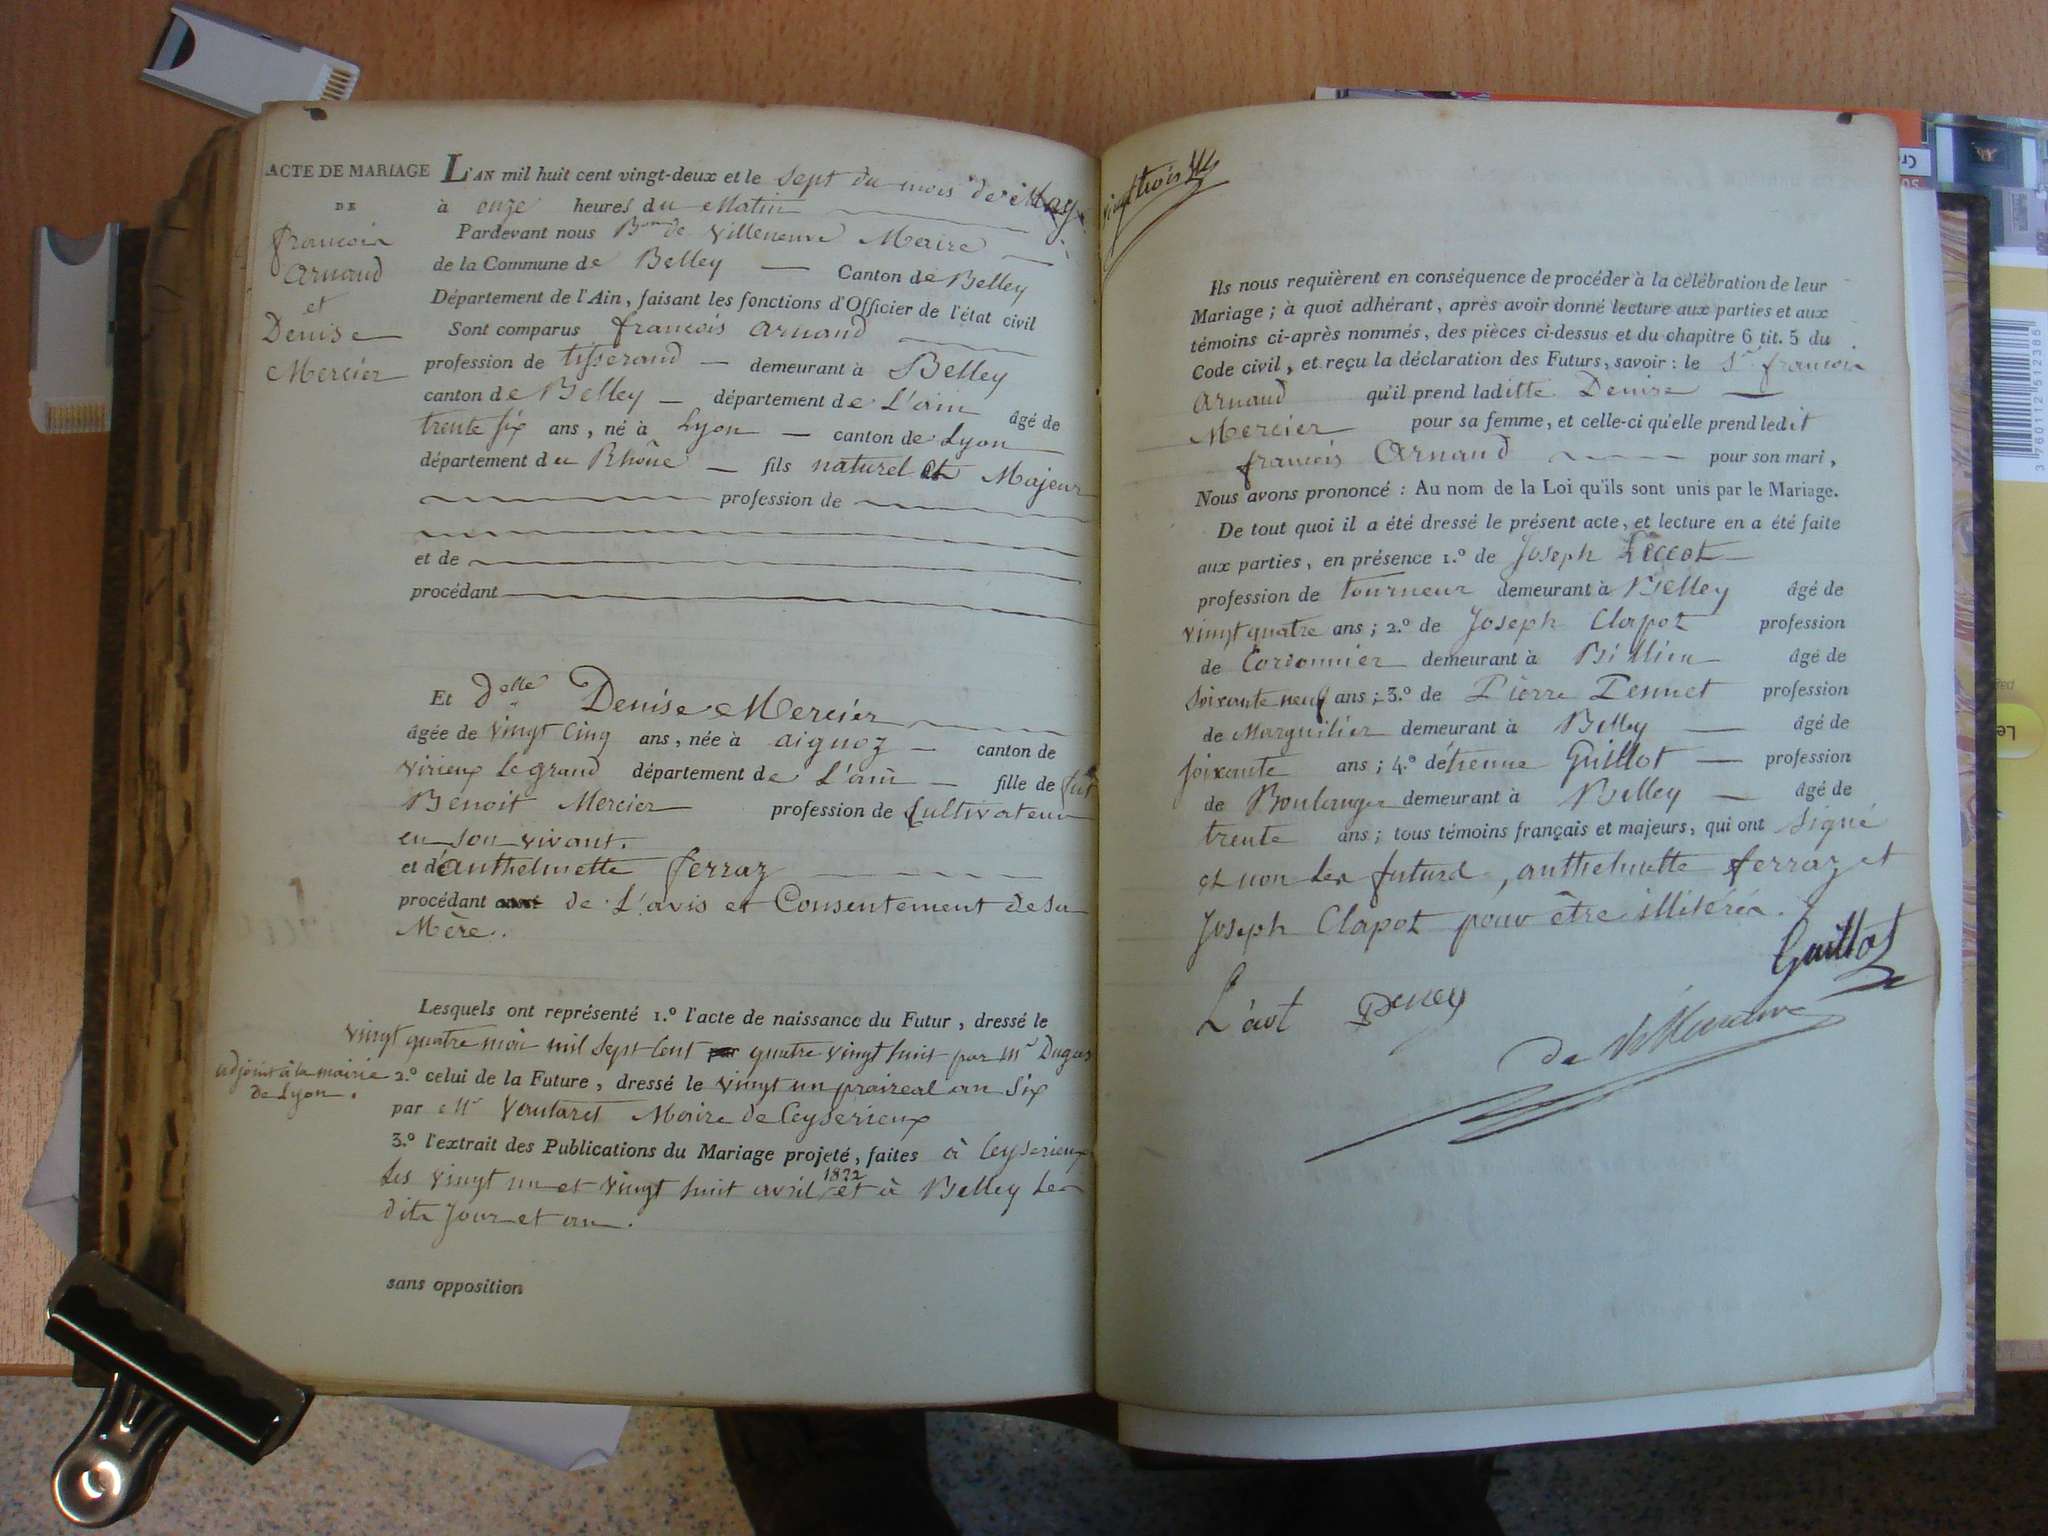 ACTE DE MARIAGE
DE
françois
Arnaud
et
Denise
Mercier
L'AN mil huit cent vingt-deux et le sept du mois de May
à onze heures du Matin
Pardevant nous Bon de Villeneuve Maire
de la Commune de Belley Canton de Belley
Département de l'Ain, faisant les fonctions d'Officier de l'état civil
Sont comparus françois Arnaud
profession de tisserand demeurant à Belley
canton de Belley département de L'ain âgé de
trente six ans, né à Lyon canton de Lyon
département du Rhône fils naturel et Majeur
profession de
et de
procédant
Et Delle Denise Mercier
âgée de vingt cinq ans, née à aignoz canton de
virieux Legrand département de L'ain fille de fut
Benoit Mercier profession de Cultivateur
en son vivant.
et d'anthelmette ferraz
procédant de L'avis et Consentement de sa
Mère.
Lesquels ont représenté 1.º l'acte de naissance du Futur, dressé le
vingt quatre mai mil sept Cent quatre vingt huit par Mr Dugas
adjoint à la mairie
de Lyon.
2.º celui de la Future, dressé le vingt un praireal an Six
par Mr Vautaret Maire de Ceyserieux
3.º l'extrait des Publications du Mariage projeté, faites à Ceyserieux
Les vingt un et vingt huit avril 1822 et à Belley les
dits Jour et an.
sans opposition
vingt trois
Ils nous requièrent en conséquence de procéder à la célébration de leur
Mariage; à quoi adhérant, après avoir donné lecture aux parties et aux
témoins ci-après nommés, des pièces ci-dessus et du chapitre 6 tit. 5 du
Code civil, et reçu la déclaration des Futurs, savoir: le Sr françois
Arnaud qu'il prend laditte Denise
Mercier pour sa femme, et celle-ci qu'elle prend ledit
françois Arnaud pour son mari,
Nous avons prononcé: Au nom de la Loi qu'ils sont unis par le Mariage.
De tout quoi il a été dressé le présent acte, et lecture en a été faite
aux parties, en présence 1.º de Joseph
profession de tourneur demeurant à Belley âgé de
vingt quatre ans; 2.º de Joseph Clapot profession
de Cordonnier demeurant à Billieu âgé de
soixante neuf ans; 3.º de Pierre profession
de Marguilier demeurant à Belley âgé de
soixante ans; 4.º d'étienne Guillot profession
de Boulanger demeurant à Belley âgé de
trente ans; tous témoins français et majeurs, qui ont signé
et non les futurs, anthelmette ferraz et
Joseph Clapot pour être illitérés.
Guillot
de Villeneuve
3 760112 512385